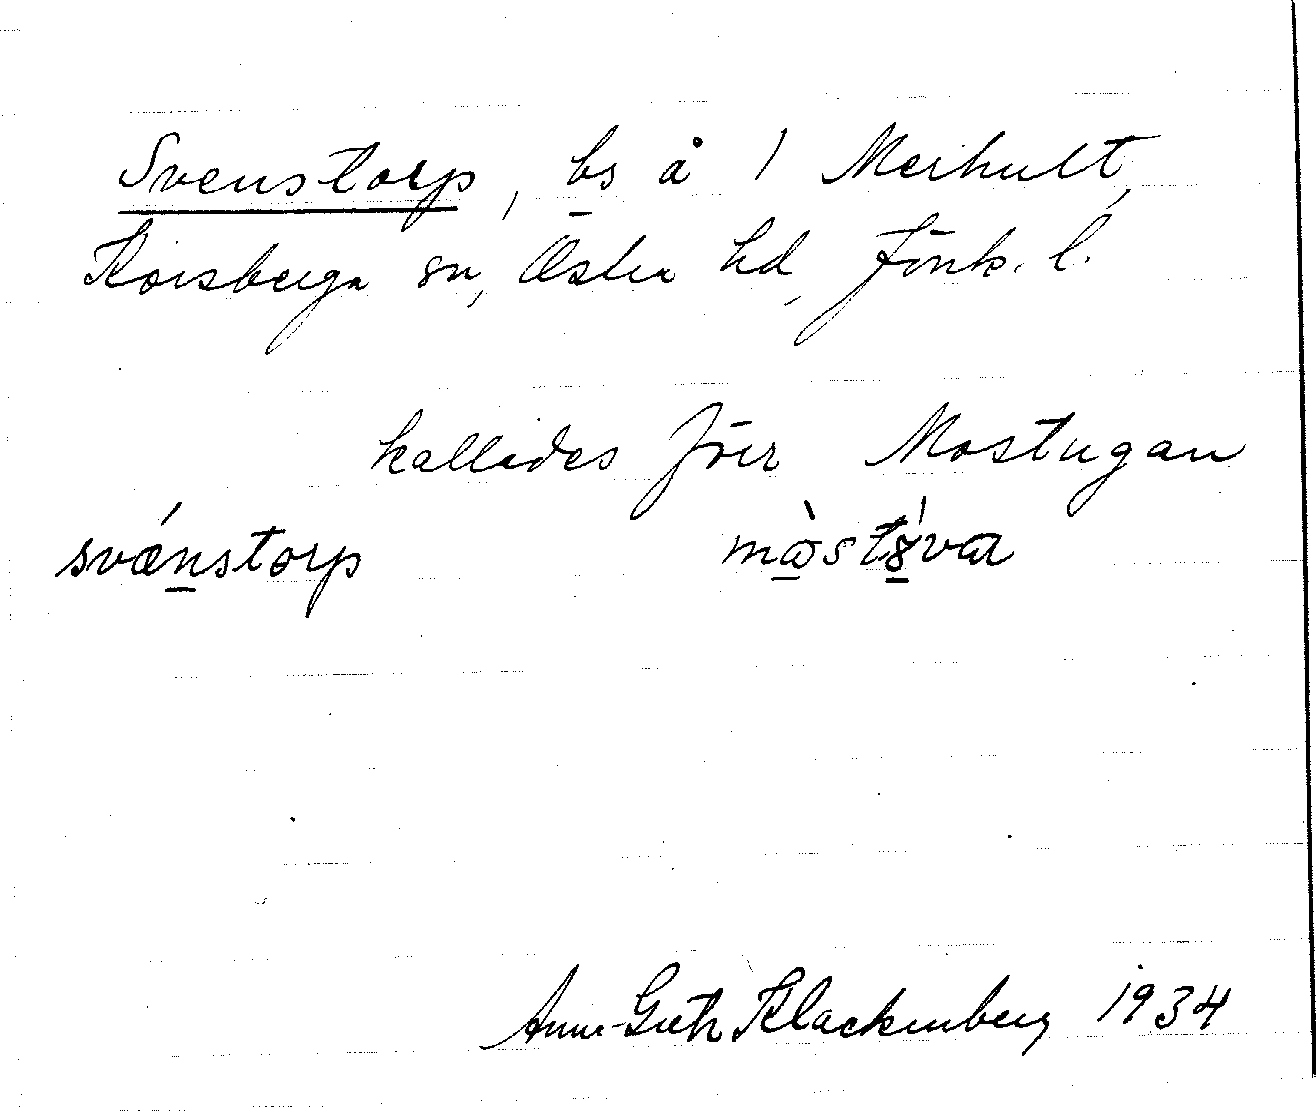 Svenstorp, bs å 1 Merhult,
Korsberga sn, Östra hd, Jönk. l.
kallades förr Mostugan
svǽnstorp mɷ̀st8́va
Anna-Greta Klackenberg 1934